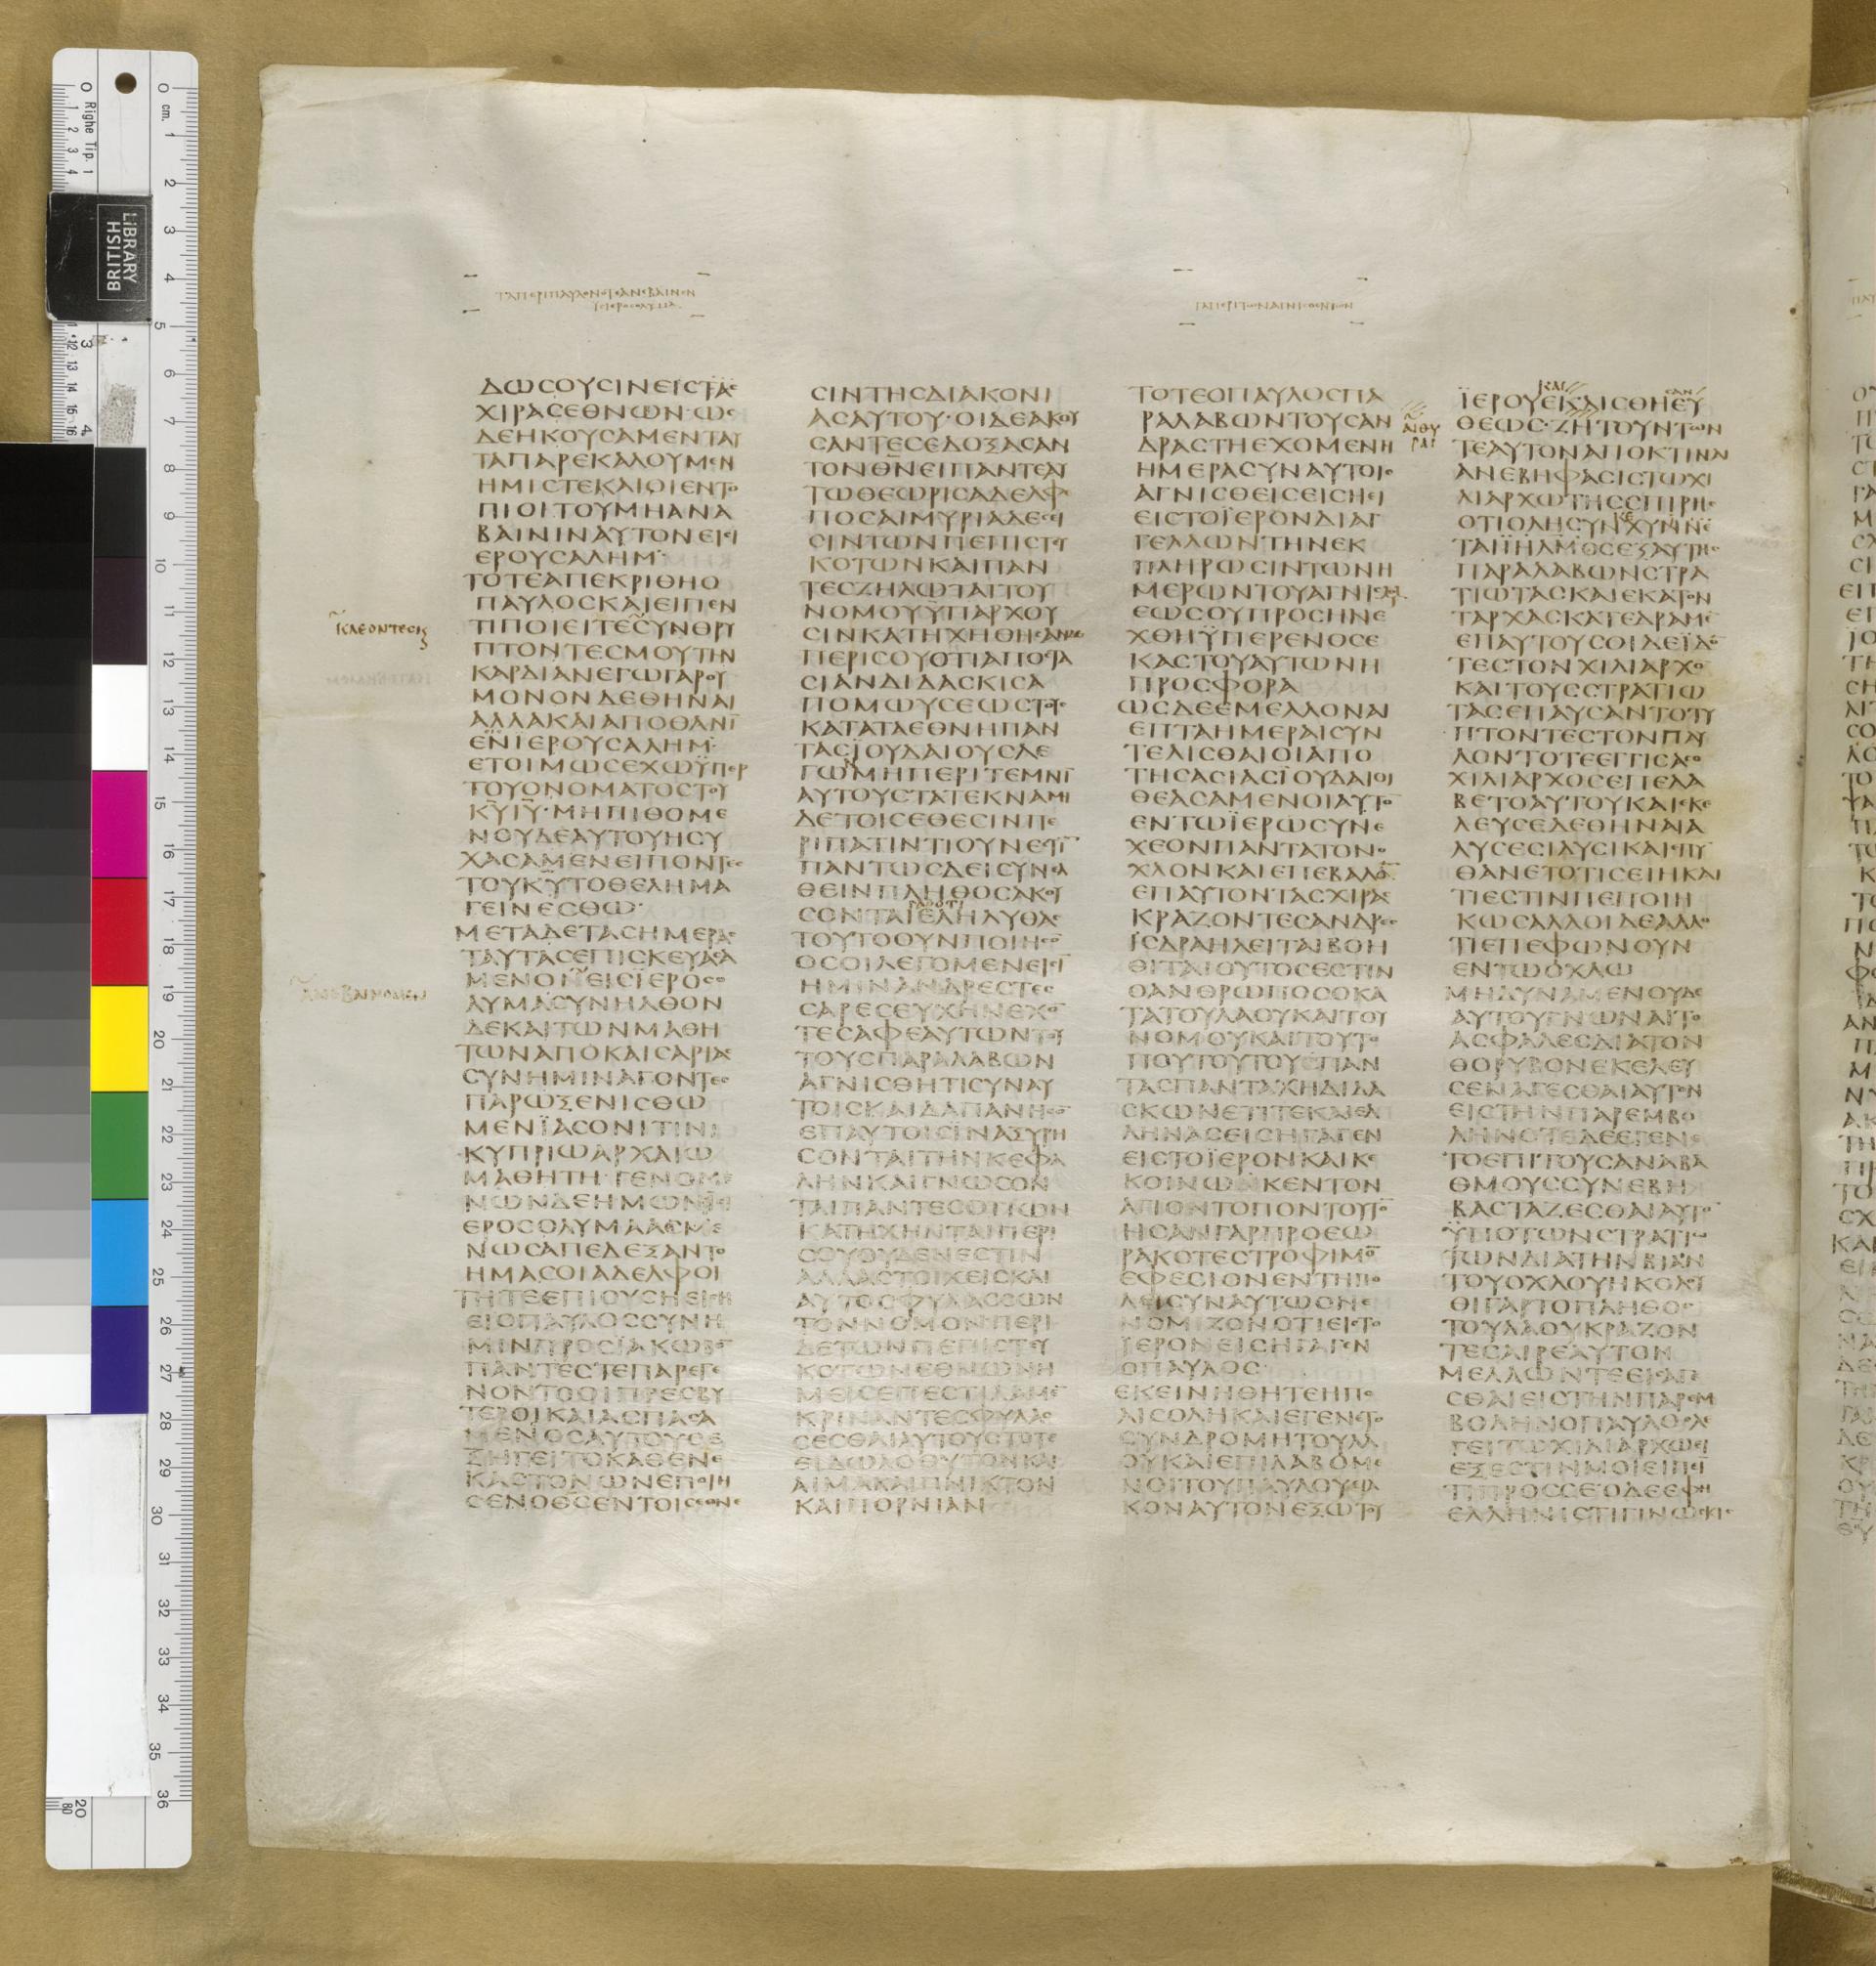 ΤΑΠΕΡΙΠΑΥΛΟΝΟΤΕΑΝΕΒΑΙΝΕΝ
ΔΩϹΟΥϹΙΝΕΙϹΤΑϹ
ΧΙΡΑϹΕΘΝΩΝ·ΩϹ
ΔΕΗΚΟΥϹΑΜΕΝΤΑΥ
ΤΑΠΑΡΕΚΑΛΟΥΜΕΝ
ΗΜΙϹΤΕΚΑΙΟΙΕΝΤΟ
ΠΙΟΙΤΟΥΜΗΑΝΑ
ΒΑΙΝΙΝΑΥΤΟΝΕΙϹΙ
ΕΡΟΥϹΑΛΗΜ·
ΤΟΤΕΑΠΕΚΡΙΘΗΟ
ΠΑΥΛΟϹΚΑΙΕΙΠΕΝ
ΤΙΠΟΙΕΙΤΕϹΥΝΘΡΥ
ΚΛΕΟΝΤΕϹΚϚ
ΠΤΟΝΤΕϹΜΟΥΤΗΝ
ΚΑΡΔΙΑΝΕΓΩΓΑΡΟΥ
ΜΟΝΟΝΔΕΘΗΝΑΙ
ΑΛΛΑΚΑΙΑΠΟΘΑΝΙ̅
ΕΝΙΕΡΟΥϹΑΛΗΜ·
ΕΤΟΙΜΩϹΕΧΩΫΠΕΡ
ΤΟΥΟΝΟΜΑΤΟϹΤΟΥ
Κ̅Υ̅Ι̅Υ̅·ΜΗΠΙΘΟΜΕ
ΝΟΥΔΕΑΥΤΟΥΗϹΥ
ΧΑϹΑΜΕΝΕΙΠΟΝΤΕϹ
ΤΟΥΚ̅Υ̅ΤΟΘΕΛΗΜΑ
ΓΕΙΝΕϹΘΩ·
ΜΕΤΑΔΕΤΑϹΗΜΕΡΑϹ
ΤΑΥΤΑϹΕΠΙϹΚΕΥΑϹΑ
ΜΕΝΟΙΕΙϹΪΕΡΟϹΟ
ΑΝΕΒΑΙΝΟΜΕΝ
ΛΥΜΑϹΥΝΗΛΘΟΝ
ΔΕΚΑΙΤΩΝΜΑΘΗ
ΤΩΝΑΠΟΚΑΙϹΑΡΙΑϹ
ϹΥΝΗΜΙΝΑΓΟΝΤΕϹ
ΠΑΡΩΞΕΝΙϹΘΩ
ΜΕΝΪΑϹΟΝΙΤΙΝΙ
ΚΥΠΡΙΩΑΡΧΑΙΩ
ΜΑΘΗΤΗ·ΓΕΝΟΜΕ
ΝΩΝΔΕΗΜΩΝΕΙϹΙ
ΕΡΟϹΟΛΥΜΑΑϹΜΕ
ΝΩϹΑΠΕΔΕΞΑΝΤΟ
ΗΜΑϹΟΙΑΔΕΛΦΟΙ
ΤΗΤΕΕΠΙΟΥϹΗΕΙϹΗ
ΕΙΟΠΑΥΛΟϹϹΥΝΗ
ΜΙΝΠΡΟϹΪΑΚΩΒΟ̅
ΠΑΝΤΕϹΤΕΠΑΡΕΓΕ
ΝΟΝΤΟΟΙΠΡΕϹΒΥ
ΤΕΡΟΙΚΑΙΑϹΠΑϹΑ
ΜΕΝΟϹΑΥΤΟΥϹΕ
ΞΗΓΕΙΤΟΚΑΘΕΝΕ
ΚΑϹΤΟΝΩΝΕΠΟΙΗ
ϹΕΝΟΘϹΕΝΤΟΙϹΕΘΝΕ
ϹΙΝΤΗϹΔΙΑΚΟΝΙ
ΑϹΑΥΤΟΥ·ΟΙΔΕΑΚΟΥ
ϹΑΝΤΕϹΕΔΟΞΑϹΑΝ
ΤΟΝΘ̅Ν̅ΕΙΠΑΝΤΕΑΥ
ΤΩΘΕΩΡΙϹΑΔΕΛΦΕ
ΠΟϹΑΙΜΥΡΙΑΔΕϹΕΙ
ϹΙΝΤΩΝΠΕΠΙϹΤΕΥ
ΚΟΤΩΝΚΑΙΠΑΝ
ΤΕϹΖΗΛΩΤΑΙΤΟΥ
ΝΟΜΟΥΫΠΑΡΧΟΥ
ϹΙΝΚΑΤΗΧΗΘΗϹΑΝΔΕ
ΠΕΡΙϹΟΥΟΤΙΑΠΟϹΤΑ
ϹΙΑΝΔΙΔΑϹΚΙϹΑ
ΠΟΜΩΥϹΕΩϹΤΟΥϹ
ΚΑΤΑΤΑΕΘΝΗΠΑΝ
ΤΑϹΪΟΥΔΑΙΟΥϹΛΕ
ΓΩΜΗΠΕΡΙΤΕΜΝΙ̅
ΑΥΤΟΥϹΤΑΤΕΚΝΑΜΗ
ΔΕΤΟΙϹΕΘΕϹΙΝΠΕ
ΡΙΠΑΤΙΝΤΙΟΥΝΕϹΤΙ̅
ΠΑΝΤΩϹΔΕΙϹΥΝΕΛ
ΘΕΙΝΠΛΗΘΟϹΑΚΟΥ
ϹΟΝΤΑΙΓΑΡΟΤΙΕΛΗΛΥΘΑϹ
ΤΟΥΤΟΟΥΝΠΟΙΗϹΟ̅
ΟϹΟΙΛΕΓΟΜΕΝΕΙϹΙ̅
ΗΜΙΝΑΝΔΡΕϹΤΕϹ
ϹΑΡΕϹΕΥΧΗΝΕΧΟ̅
ΤΕϹΑΦΕΑΥΤΩΝΤΟΥ
ΤΟΥϹΠΑΡΑΛΑΒΩΝ
ΑΓΝΙϹΘΗΤΙϹΥΝΑΥ
ΤΟΙϹΚΑΙΔΑΠΑΝΗϹΟ̅
ΕΠΑΥΤΟΙϹΪΝΑΞΥΡΗ
ϹΟΝΤΑΙΤΗΝΚΕΦΑ
ΛΗΝΚΑΙΓΝΩϹΟΝ
ΤΑΙΠΑΝΤΕϹΟΤΙΩΝ
ΚΑΤΗΧΗΝΤΑΙΠΕΡΙ
ϹΟΥΟΥΔΕΝΕϹΤΙΝ
ΑΛΛΑϹΤΟΙΧΕΙϹΚΑΙ
ΑΥΤΟϹΦΥΛΑϹϹΩΝ
ΤΟΝΝΟΜΟΝΠΕΡΙ
ΔΕΤΩΝΠΕΠΙϹΤΕΥ
ΚΟΤΩΝΕΘΝΩΝΗ
ΜΕΙϹΕΠΕϹΤΙΛΑΜΕ̅
ΚΡΙΝΑΝΤΕϹΦΥΛΑϹ
ϹΕϹΘΑΙΑΥΤΟΥϹΤΟΤΕ
ΕΙΔΩΛΟΘΥΤΟΝΚΑΙ
ΑΙΜΑΚΑΙΠΝΙΚΤΟΝ
ΚΑΙΠΟΡΝΙΑΝ
ΤΑΠΕΡΙΤΩΝΑΓΝΙϹΘΕΝΤΩΝ
ΤΟΤΕΟΠΑΥΛΟϹΠΑ
ΡΑΛΑΒΩΝΤΟΥϹΑΝ
ΔΡΑϹΤΗΕΧΟΜΕΝΗ
ΗΜΕΡΑϹΥΝΑΥΤΟΙϹ
ΑΓΝΙϹΘΕΙϹΕΙϹΗΕΙ
ΕΙϹΤΟΪΕΡΟΝΔΙΑΓ
ΓΕΛΛΩΝΤΗΝΕΚ
ΠΛΗΡΩϹΙΝΤΩΝΗ
ΜΕΡΩΝΤΟΥΑΓΝΙϹΜΟΥ
ΕΩϹΟΥΠΡΟϹΗΝΕ
ΧΘΗΫΠΕΡΕΝΟϹΕ
ΚΑϹΤΟΥΑΥΤΩΝΗ
ΠΡΟϹΦΟΡΑ
ΩϹΔΕΕΜΕΛΛΟΝΑΙ
ΕΠΤΑΗΜΕΡΑΙϹΥΝ
ΤΕΛΙϹΘΑΙΟΙΑΠΟ
ΤΗϹΑϹΙΑϹΪΟΥΔΑΙΟΙ
ΘΕΑϹΑΜΕΝΟΙΑΥΤΟ̅
ΕΝΤΩΪΕΡΩϹΥΝΕ
ΧΕΟΝΠΑΝΤΑΤΟΝΟ
ΧΛΟΝΚΑΙΕΠΕΒΑΛΟ̅
ΕΠΑΥΤΟΝΤΑϹΧΙΡΑϹ
ΚΡΑΖΟΝΤΕϹΑΝΔΡΕϹ
ΪϹΔΡΑΗΛΕΙΤΑΙΒΟΗ
ΘΙΤΑΙΟΥΤΟϹΕϹΤΙΝ
ΟΑΝΘΡΩΠΟϹΟΚΑ
ΤΑΤΟΥΛΑΟΥΚΑΙΤΟΥ
ΝΟΜΟΥΚΑΙΤΟΥΤΟ
ΠΟΥΤΟΥΤΟΥΕΠΑΝ
ΤΑϹΠΑΝΤΑΧΗΔΙΔΑ
ϹΚΩΝΕΤΙΤΕΚΑΙΕΛ
ΛΗΝΑϹΕΙϹΗΓΑΓΕΝ
ΕΙϹΤΟΪΕΡΟΝΚΑΙΚΕ
ΚΟΙΝΩΚΕΝΤΟΝ
ΑΓΙΟΝΤΟΠΟΝΤΟΥΤΟ̅
ΗϹΑΝΓΑΡΠΡΟΕΩ
ΡΑΚΟΤΕϹΤΡΟΦΙΜΟ̅
ΕΦΕϹΙΟΝΕΝΤΗΠΟ
ΛΕΙϹΥΝΑΥΤΩΟΝΕ
ΝΟΜΙΖΟΝΟΤΙΕΙϹΤΟ
ΪΕΡΟΝΕΙϹΗΓΑΓΕΝ
ΟΠΑΥΛΟϹ
ΕΚΕΙΝΗΘΗΤΕΗΠΟ
ΛΙϹΟΛΗΚΑΙΕΓΕΝΕΤΟ
ϹΥΝΔΡΟΜΗΤΟΥΛΑ
ΟΥΚΑΙΕΠΙΛΑΒΟΜΕ
ΝΟΙΤΟΥΠΑΥΛΟΥΕΙΛ
ΚΟΝΑΥΤΟΝΕΞΩΤΟΥ
ΪΕΡΟΥΕΚΛΙϹΘΗΕΥ
ΘΕΩϹ·ΖΗΤΟΥΝΤΩΝ
ΑΙΘΥ
ΡΑΙ
ΤΕΑΥΤΟΝΑΠΟΚΤΙΝΑΙ
ΑΝΕΒΗΦΑϹΙϹΤΩΧΙ
ΛΙΑΡΧΩΤΗϹϹΠΙΡΗϹ
ΟΤΙΟΛΗϹΥΝΧΥΝΝΕ
ΤΑΙΪΗΛΜΟϹΕΞΑΥΤΗϹ
ΠΑΡΑΛΑΒΩΝϹΤΡΑ
ΤΙΩΤΑϹΚΑΙΕΚΑΤΟΝ
ΤΑΡΧΑϹΚΑΤΕΔΡΑΜΕ̅
ΕΠΑΥΤΟΥϹΟΙΔΕΪΔΟ̅
ΤΕϹΤΟΝΧΙΛΙΑΡΧΟ̅
ΚΑΙΤΟΥϹϹΤΡΑΤΙΩ
ΤΑϹΕΠΑΥϹΑΝΤΟΤΥ
ΠΤΟΝΤΕϹΤΟΝΠΑΥ
ΛΟΝΤΟΤΕΕΓΓΙϹΑϹΟ
ΧΙΛΙΑΡΧΟϹΕΠΕΛΑ
ΒΕΤΟΑΥΤΟΥΚΑΙΕΚΕ
ΛΕΥϹΕΔΕΘΗΝΑΙΑ
ΛΥϹΕϹΙΔΥϹΙΚΑΙΕΠΥ
ΘΑΝΕΤΟΤΙϹΕΙΗΚΑΙ
ΤΙΕϹΤΙΝΠΕΠΟΙΗ
ΚΩϹΑΛΛΟΙΔΕΑΛΛΟ
ΤΙΕΠΕΦΩΝΟΥΝ
ΕΝΤΩΟΧΛΩ
ΜΗΔΥΝΑΜΕΝΟΥΔΕ
ΑΥΤΟΥΓΝΩΝΑΙΤΟ
ΑϹΦΑΛΕϹΔΙΑΤΟΝ
ΘΟΡΥΒΟΝΕΚΕΛΕΥ
ϹΕΝΑΓΕϹΘΑΙΑΥΤΟΝ
ΕΙϹΤΗΝΠΑΡΕΜΒΟ
ΛΗΝΟΤΕΔΕΕΓΕΝΕ
ΤΟΕΠΙΤΟΥϹΑΝΑΒΑ
ΘΜΟΥϹϹΥΝΕΒΗ
ΒΑϹΤΑΖΕϹΘΑΙΑΥΤΟ̅
ΫΠΟΤΩΝϹΤΡΑΤΙΩ
ΤΩΝΔΙΑΤΗΝΒΙΑΝ
ΤΟΥΟΧΛΟΥΗΚΟΛΟΥ
ΘΙΓΑΡΤΟΠΛΗΘΟϹ
ΤΟΥΛΑΟΥΚΡΑΖΟΝ
ΤΕϹΑΙΡΕΑΥΤΟΝ
ΜΕΛΛΩΝΤΕΕΙϹΑΓΕ
ϹΘΑΙΕΙϹΤΗΝΠΑΡΕΜ
ΒΟΛΗΝΟΠΑΥΛΟϹΛΕ
ΓΕΙΤΩΧΙΛΙΑΡΧΩΕΙ
ΕΞΕϹΤΙΝΜΟΙΕΙΠΕΙ̅
ΤΙΠΡΟϹϹΕΟΔΕΕΦΗ
ΕΛΛΗΝΙϹΤΙΓΙΝΩϹΚΙϹ
LIBRARY
BRITISH